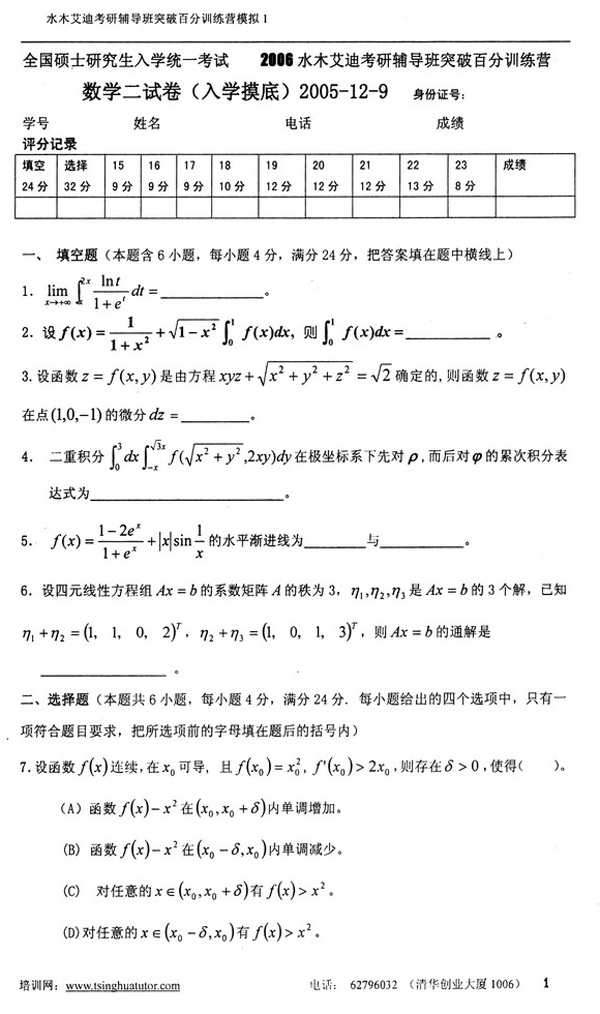 水木艾迪考研辅导班突破百分训练营模拟 1
全国硕士研究生入学统一考试 2006 水木艾迪考研辅导班突破百分训练营
数学二试卷（入学摸底）2005-12-9 身份证号：
学号 姓名 电话 成绩
评分记录
填空 选择 15 16 17 18 19 20 21 22 23 成绩
24 分 32 分 9 分 9 分 9 分 10 分 12 分 12 分 12 分 13 分 8 分
一、 填空题（本题含 6 小题，每小题 4 分，满分 24 分，把答案填在题中横线上）
1. lim_{x→+∞} ∫_x^{2x} \frac{ln t}{1+e^t} dt = ____________。
2. 设 f(x) = \frac{1}{1+x^2} + √(1-x^2) ∫_0^1 f(x)dx, 则 ∫_0^1 f(x)dx = __________ 。
3. 设函数 z = f(x,y) 是由方程 xyz + √(x^2+y^2+z^2) = √2 确定的, 则函数 z = f(x,y)
在点 (1,0,-1) 的微分 dz = ________。
4. 二重积分 ∫_0^3 dx ∫_{-x}^{√3x} f(√(x^2+y^2),2xy)dy 在极坐标系下先对 ρ , 而后对 φ 的累次积分表
达式为______________________。
5. f(x) = \frac{1-2e^x}{1+e^x} + |x| sin \frac{1}{x} 的水平渐进线为_______与__________。
6. 设四元线性方程组 Ax = b 的系数矩阵 A 的秩为 3，η_1,η_2,η_3 是 Ax = b 的 3 个解，已知
η_1 + η_2 = (1, 1, 0, 2)^T，η_2 + η_3 = (1, 0, 1, 3)^T，则 Ax = b 的通解是
______________ 。
二、选择题（本题共 6 小题，每小题 4 分，满分 24 分. 每小题给出的四个选项中，只有一
项符合题目要求，把所选项前的字母填在题后的括号内）
7. 设函数 f(x) 连续, 在 x_0 可导, 且 f(x_0) = x_0^2, f'(x_0) > 2x_0 , 则存在 δ > 0 , 使得( )。
（A）函数 f(x) - x^2 在 (x_0, x_0 + δ) 内单调增加。
(B) 函数 f(x) - x^2 在 (x_0 - δ, x_0) 内单调减少。
(C) 对任意的 x ∈ (x_0, x_0 + δ) 有 f(x) > x^2 。
(D) 对任意的 x ∈ (x_0 - δ, x_0) 有 f(x) > x^2 。
培训网：www.tsinghuatutor.com 电话： 62796032 （清华创业大厦 1006） 1